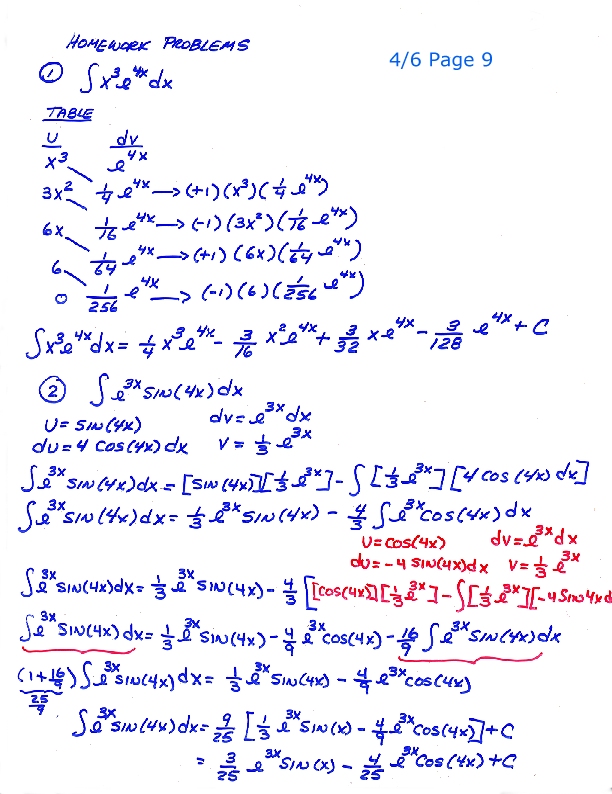 HOMEWORK PROBLEMS
4/6 Page 9
① ∫x³e⁴ˣdx
TABLE
U dv
x³ e⁴ˣ
3x² 1/4 e⁴ˣ → (+1)(x³)(1/4 e⁴ˣ)
6x 1/16 e⁴ˣ → (-1)(3x²)(1/16 e⁴ˣ)
6 1/64 e⁴ˣ → (+1)(6x)(1/64 e⁴ˣ)
0 1/256 e⁴ˣ → (-1)(6)(1/256 e⁴ˣ)
∫x³e⁴ˣdx = 1/4 x³e⁴ˣ - 3/16 x²e⁴ˣ + 3/32 xe⁴ˣ - 3/128 e⁴ˣ + C
② ∫e³ˣ SIN(4x)dx
U = SIN(4x) dv = e³ˣdx
du = 4 COS(4x)dx V = 1/3 e³ˣ
∫e³ˣ SIN(4x)dx = [SIN(4x)][1/3 e³ˣ] - ∫[1/3 e³ˣ][4 COS(4x)dx]
∫e³ˣ SIN(4x)dx = 1/3 e³ˣ SIN(4x) - 4/3 ∫e³ˣ COS(4x)dx
U = COS(4x) dv = e³ˣdx
du = -4 SIN(4x)dx V = 1/3 e³ˣ
∫e³ˣ SIN(4x)dx = 1/3 e³ˣ SIN(4x) - 4/3 [[COS(4x)][1/3 e³ˣ] - ∫[1/3 e³ˣ][-4 SIN 4x d
∫e³ˣ SIN(4x)dx = 1/3 e³ˣ SIN(4x) - 4/9 e³ˣ COS(4x) - 16/9 ∫e³ˣ SIN(4x)dx
(1 + 16/9) ∫e³ˣ SIN(4x)dx = 1/3 e³ˣ SIN(4x) - 4/9 e³ˣ COS(4x)
25/9
∫e³ˣ SIN(4x)dx = 9/25 [1/3 e³ˣ SIN(x) - 4/9 e³ˣ COS(4x)] + C
= 3/25 e³ˣ SIN(x) - 4/25 e³ˣ COS(4x) + C